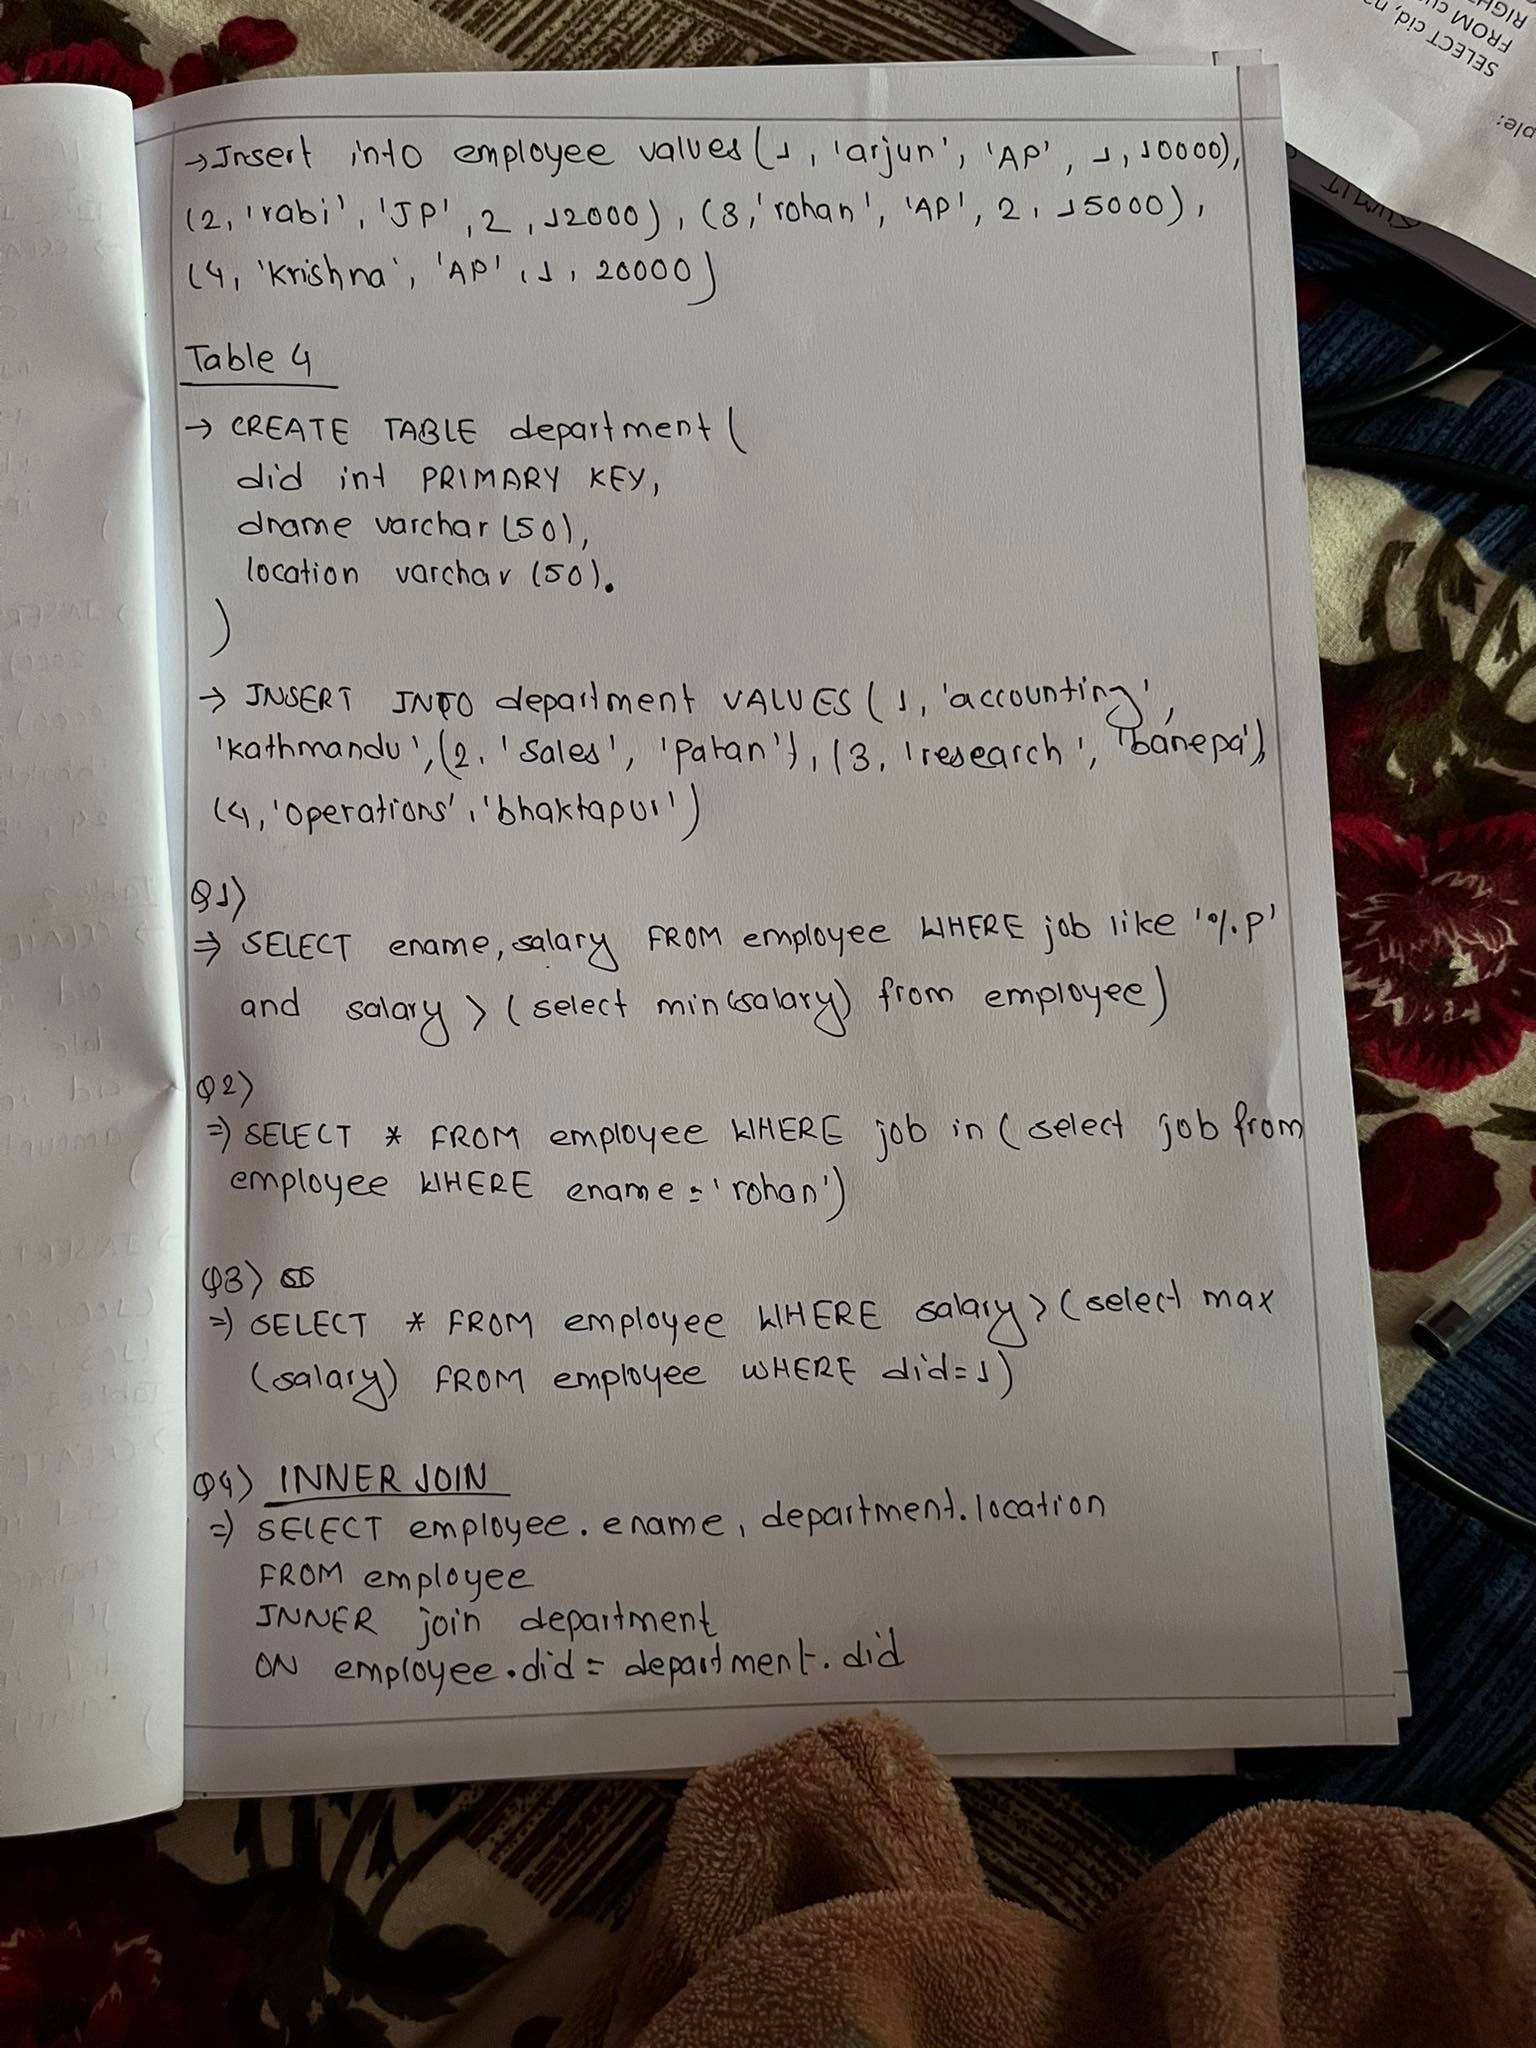 → Insert into employee values (1, 'arjun', 'AP', 1, 10000),
(2, 'rabi', 'JP', 2, 12000), (3, 'rohan', 'AP', 2, 15000),
(4, 'Krishna', 'AP', 1, 20000)
Table 4
→ CREATE TABLE department (
did int PRIMARY KEY,
dname varchar (50),
location varchar (50).
)
→ INSERT INTO department VALUES (1, 'accounting',
'kathmandu', (2, 'sales', 'patan'), (3, 'research', 'banepa'),
(4, 'operations', 'bhaktapur')
Q1)
⇒ SELECT ename, salary FROM employee WHERE job like '%p'
and salary > (select min(salary) from employee)
Q2)
⇒ SELECT * FROM employee WHERE job in (select job from
employee WHERE ename = 'rohan')
Q3)
⇒ SELECT * FROM employee WHERE salary > (select max
(salary) FROM employee WHERE did=1)
Q4) INNER JOIN
⇒ SELECT employee.ename, department.location
FROM employee
INNER join department
ON employee.did = department.did
SELECT cid,
FROM
RIGHT